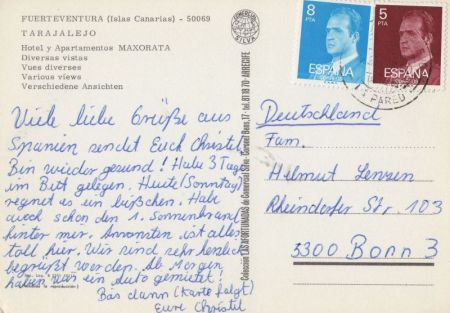 FUERTEVENTURA (Islas Canarias) - 50069
TARAJALEJO
Hotel y Apartamentos MAXORATA
Diversas vistas
Vues diverses
Various views
Verschiedene Ansichten
Viele liebe Grüße aus
Spanien sendet Euch Christel
Bin wieder gesund! Habe 3 Tage
im Bett gelegen. Heute (Sonntag)
regnet es ein bißchen. Habe
auch schon den 1. Sonnenbrand
hinter mir. Ansonsten ist alles
toll hier. Wir sind sehr herzlich
begrüßt worden. Ab Morgen
haben wir ein Auto gemietet!
Bis dann (Karte folgt)
Eure Christel
COMERCIAL
SILVA
Colección LAS AFORTUNADAS de Comercial Silva - Coronel Bens, 17 - tel. 81 18 70 - ARRECIFE
8
PTA
ESPAÑA
5
PTA
ESPAÑA
Deutschland
Fam.
Helmut Lenzen
Rheindorfer Str. 103
5300 Bonn 3